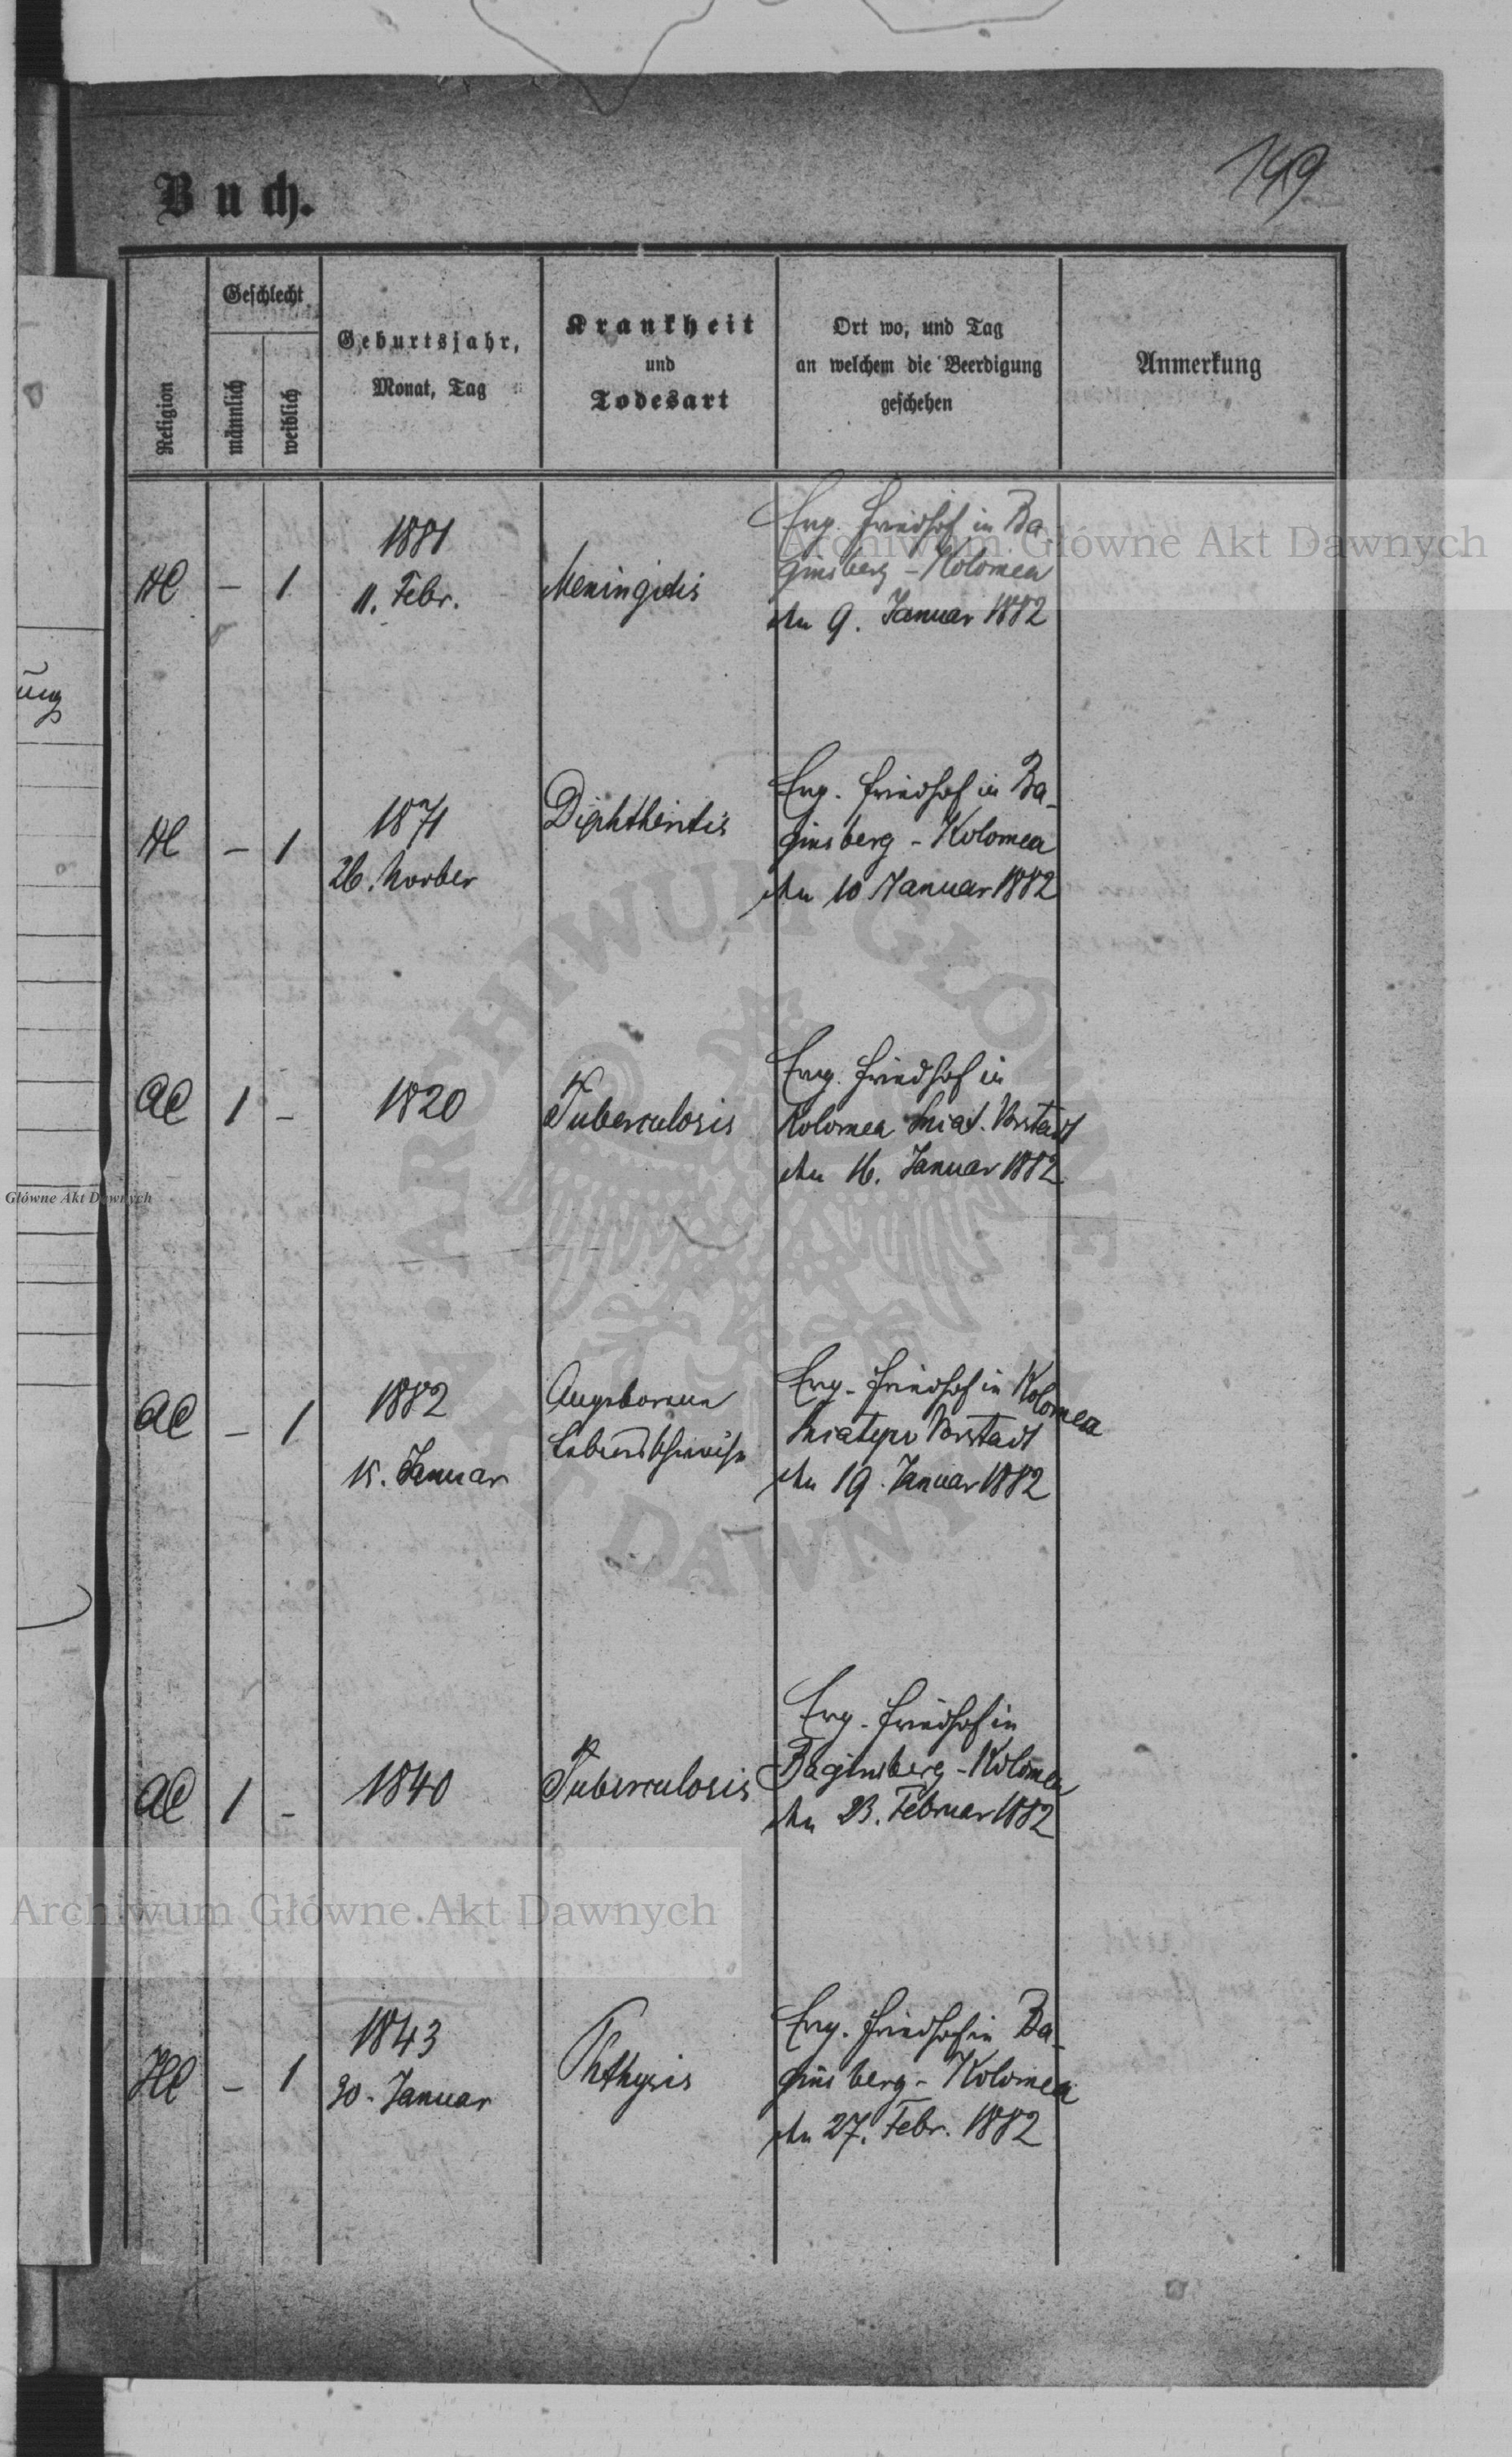 149
Buch.
Religion
Geschlecht
männlich
weiblich
Geburtsjahr,
Monat, Tag
Krankheit
und
Todesart
Ort wo, und Tag
an welchem die Beerdigung
geschehen
Anmerkung
ung
HC – 1
1881
11. Febr.
Meningitis
Evg. Friedhof in Ba
ginsberg – Kolomea
den 9. Januar 1882
HC – 1
1871
26. Novber
Diphtheritis
Evg. Friedhof in Ba-
ginsberg – Kolomea
den 10 Januar 1882
AC 1 –
1820
Tuberculosis
Evg. Friedhof in
Kolomea Sniat. Vorstadt
den 16. Januar 1882
AC – 1
1882
15. Januar
Angeborene
Lebensschwäche
Evg. Friedhof in Kolomea
Vorstadt
den 19. Januar 1882
AC 1 –
1840
Tuberculosis
Evg. Friedhof in
Baginsberg – Kolomea
den 23. Februar 1882
HC – 1
1843
30. Januar
Phthysis
Evg. Friedhof in Ba-
ginsberg – Kolomea
den 27. Febr. 1882
Archiwum Główne Akt Dawnych
Główne Akt Dawnych
Archiwum Główne Akt Dawnych
ARCHIWUM GŁÓWNE AKT DAWNYCH